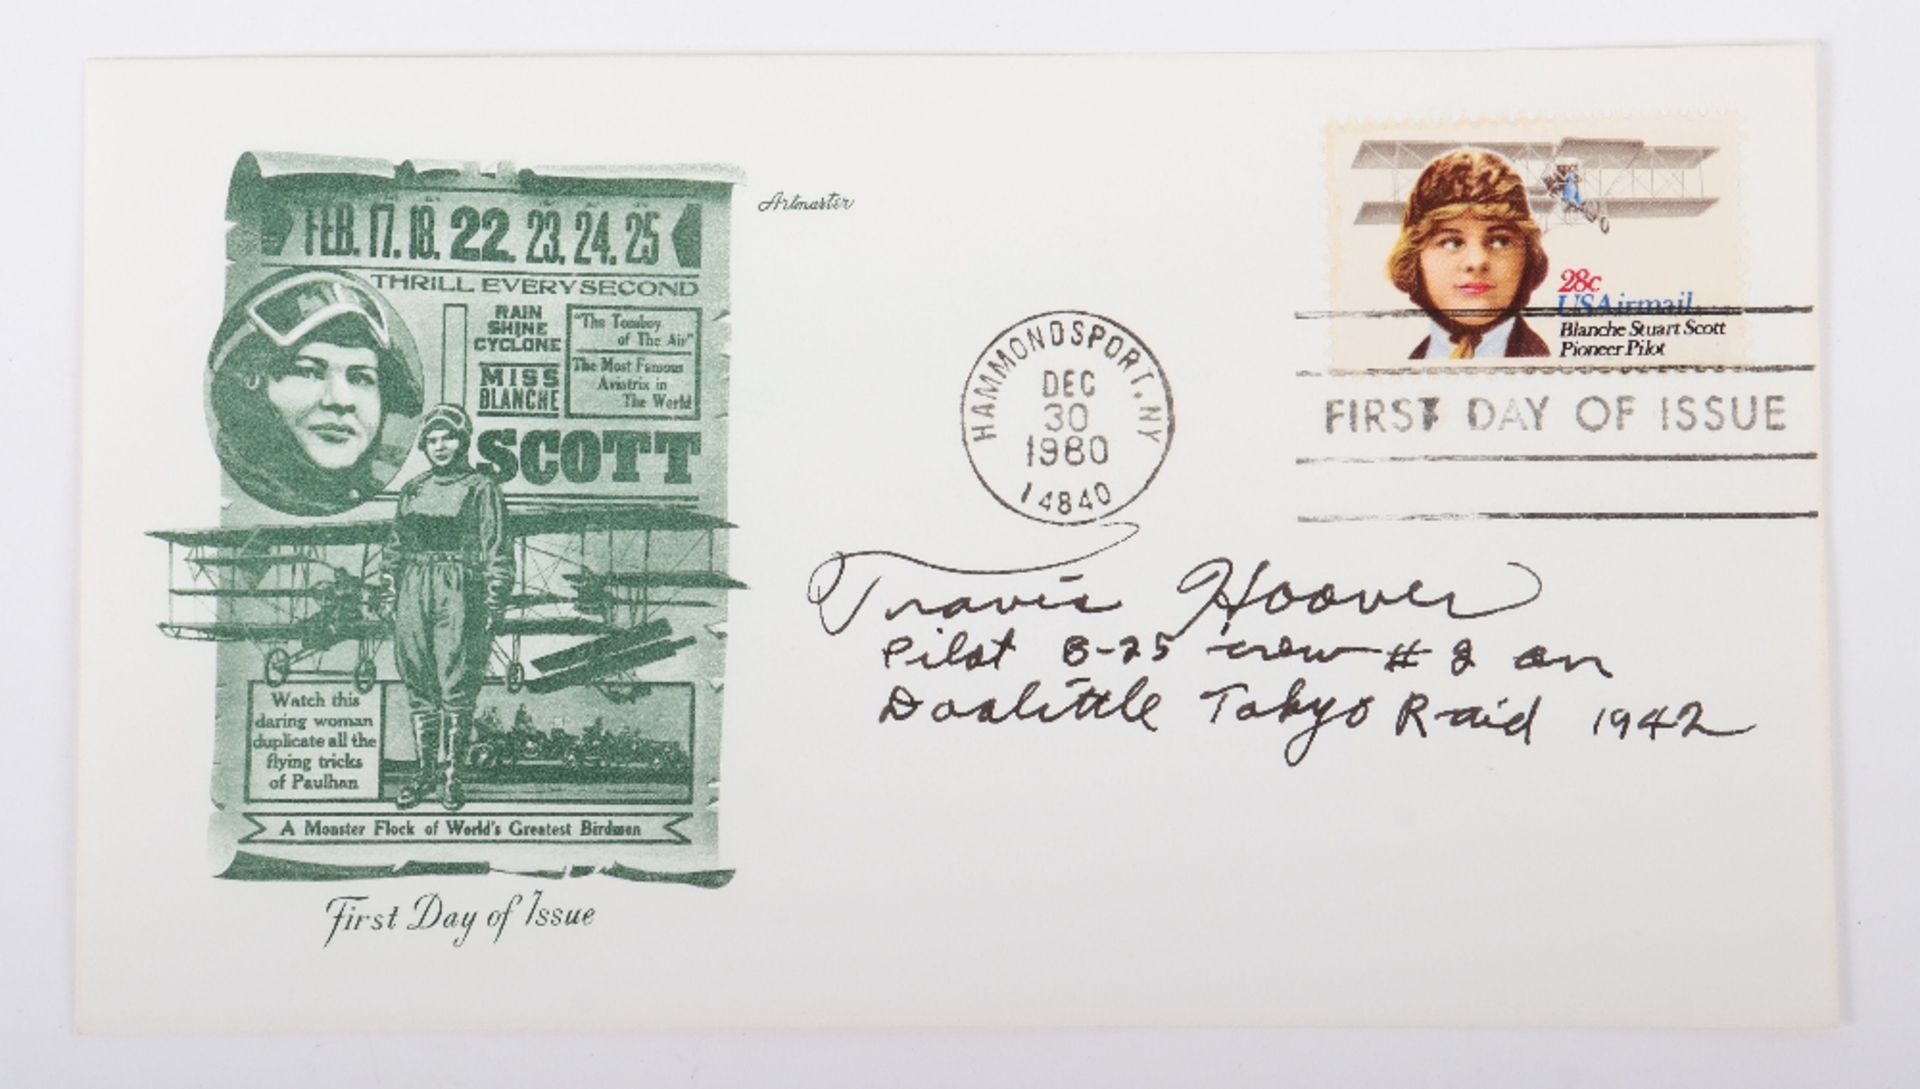 FEB. 17. 18. 22. 23. 24. 25
THRILL EVERY SECOND
RAIN
SHINE
CYCLONE
MISS
BLANCHE
"The Tomboy
of The Air"
The Most Famous
Aviatrix in
The World
SCOTT
Watch this
daring woman
duplicate all the
flying tricks
of Paulhan
A Monster Flock of World's Greatest Birdmen
First Day of Issue
Artmaster
HAMMONDSPORT, NY
DEC
30
1980
14840
28c
USAirmail
Blanche Stuart Scott
Pioneer Pilot
FIRST DAY OF ISSUE
Travis Hoover
Pilot B-25 crew # 2 on
Doolittle Tokyo Raid 1942